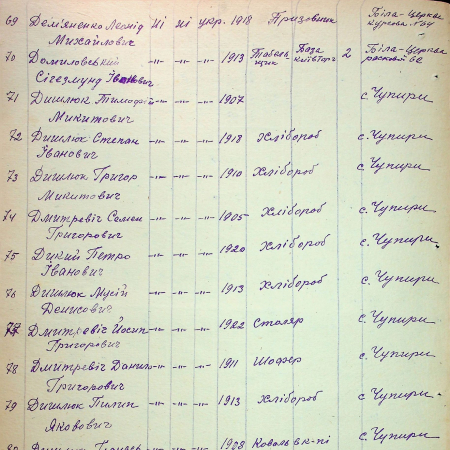 69 Дем'яненко Леонід ні ні укр. 1918 Призовник Біла-Церква
Михайлович
70 Домиловський -"- -"- -"- 1913 База 2 Біла-Церква
Сігезмунд Іванович щик
71 Дишлюк Тимофій -"- -"- -"- 1907 с. Чупири
Микитович
72 Дишлюк Степан -"- -"- -"- 1918 Хлібороб с. Чупири
Іванович
73 Дишлюк Григор -"- -"- -"- 1910 Хлібороб с. Чупири
Микитович
74 Дмитревіч Семен -"- -"- -"- 1905 Хлібороб с. Чупири
Григорович
75 Дикий Петро -"- -"- -"- 1920 Хлібороб с. Чупири
Іванович
76 Дишлюк Мусій -"- -"- -"- 1913 Хлібороб с. Чупири
Денисович
77 Дмитревіч Йосип -"- -"- -"- 1922 Столяр с. Чупири
Григорович
78 Дмитревіч Данило -"- -"- -"- 1911 Шофер с. Чупири
Григорович
79 Дишлюк Пилип -"- -"- -"- 1913 Хлібороб с. Чупири
Яковович
80 -"- -"- -"- 1908 Коваль в к-пі с. Чупири